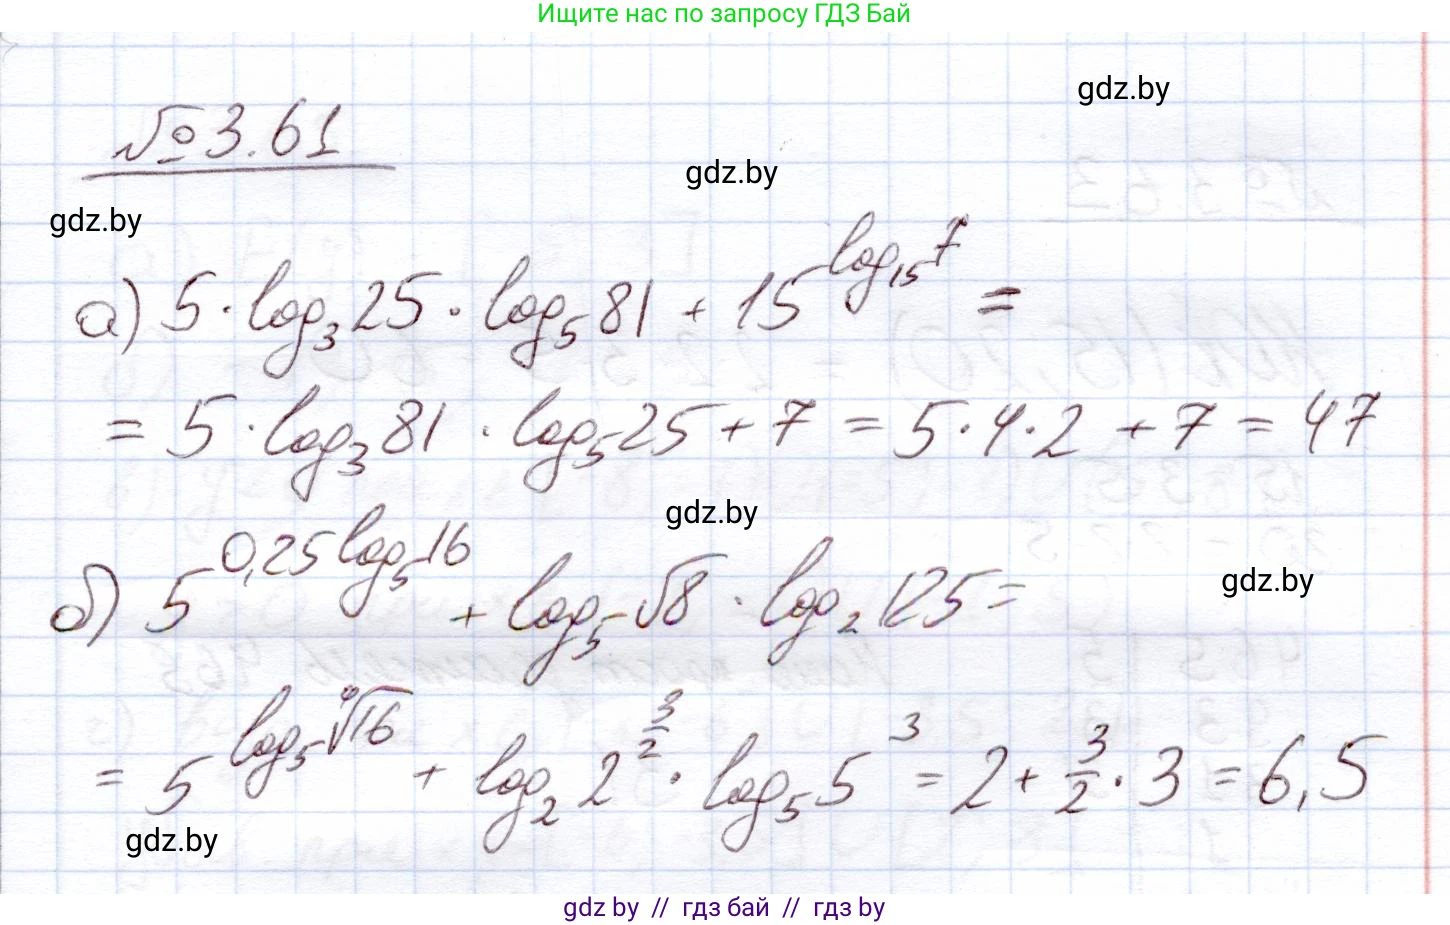 Ищите нас по запросу ГДЗ Бай
gdz.by
№3.61
gdz.by
gdz.by
а) 5·log₃25·log₅81 + 15^(log₁₅7) =
= 5·log₃81·log₅25 + 7 = 5·4·2 + 7 = 47
gdz.by
б) 5^(0,25log₅16) + log₅√8·log₂125 =
gdz.by
= 5^(log₅∜16) + log₂2^(3/2)·log₅5³ = 2 + 3/2·3 = 6,5
gdz.by
gdz by // гдз бай // гдз by